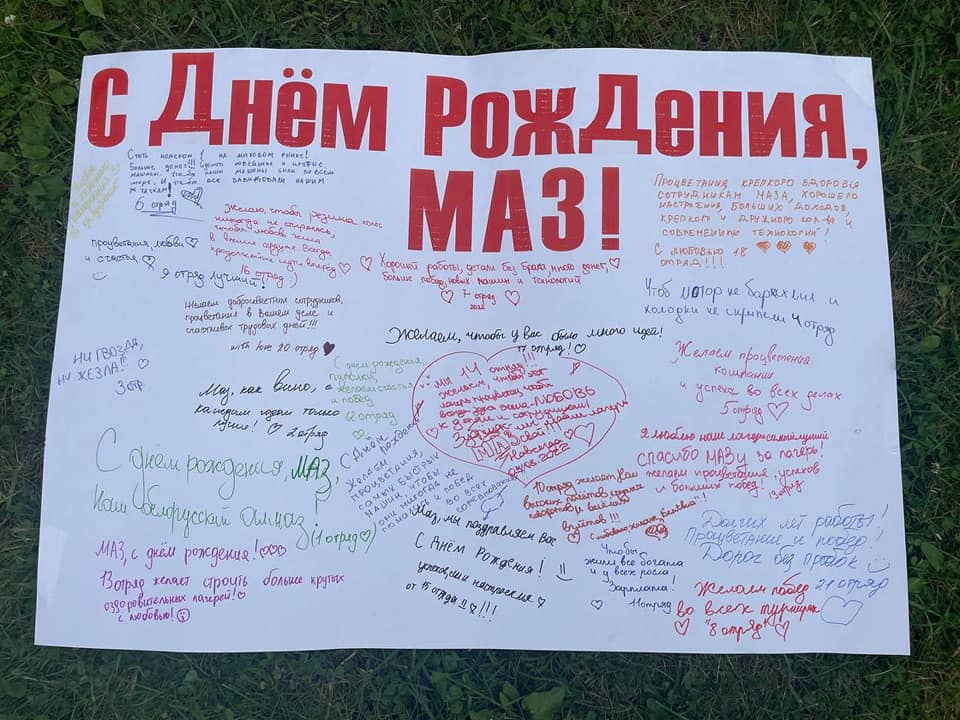 С Днём Рождения,
МАЗ!
Стать номером 1 на мировом рынке!
Больше денег!!!
машины. Чтобы
море. И все завидовали нашим
тачкам!
6 отряд
процветания, любви
и счастья
Я отряд лучший!
Желаю, чтобы резина колёс
никогда не стиралась,
чтобы любовь жила
в Ваших сердцах всегда
продолжайте идти вперёд
16 отряд :)
Хорошей работы, детали без брака, много денег,
больше побед, новых машин и технологий
7 отряд
2022
Процветания, крепкого здоровья
сотрудникам МАЗа, хорошего
настроения, больших доходов,
крепкого и дружного кол-ва и
современных технологий!
С любовью 18
отряд!!!
Чтоб мотор не барахлил и
колодки не скрипели 4 отряд
Желаем добросовестных сотрудников,
процветания в Вашем деле и
счастливых трудовых дней!!!
with love 20 отряд
Желаем, чтобы у Вас было много идей!
17 отряд!
Ни гвоздя,
ни жезла!
3 отр.
Маз, как вино, с
каждым годом только
лучше! 2 отряд
С днём рождения
желаем счастья
и побед
12 отряд
Мы 14 отряд!!!
желаем, чтобы этот
лагерь
ваша ЛЮБОВЬ
к детям и сотрудникам!
2022
Желаем процветания
компании
и успеха во всех делах
5 отряд
Я люблю наш лагерь самый лучший
Спасибо МАЗу за лагерь!
желаем процветания, успехов
и больших побед! 19 отряд
С днём рождения, МАЗ!
Наш белорусский алмаз!
(1 отряд)
С Днём
рождения
Желаем
процветания,
самых быстрых
машин, чтобы
они никогда не
ломались и побед
во всех
соревнованиях
10 отряд желает Вам
высоких полётов
и весёлых
взлётов!!!
Маз, мы поздравляем Вас
С Днём Рождения!
успехов и настроения
от 15 отряда !!!
Долгих лет работы!
Процветание и побед!
Дорог без пробок
21 отряд
МАЗ, с днём рождения!
13 отряд желает строить больше крутых
оздоровительных лагерей!
с любовью!
Чтобы
жили все богато
и у всех росла
Зарплата!
11 отряд
Желаем побед
во всех турнирах
"8 отряд"